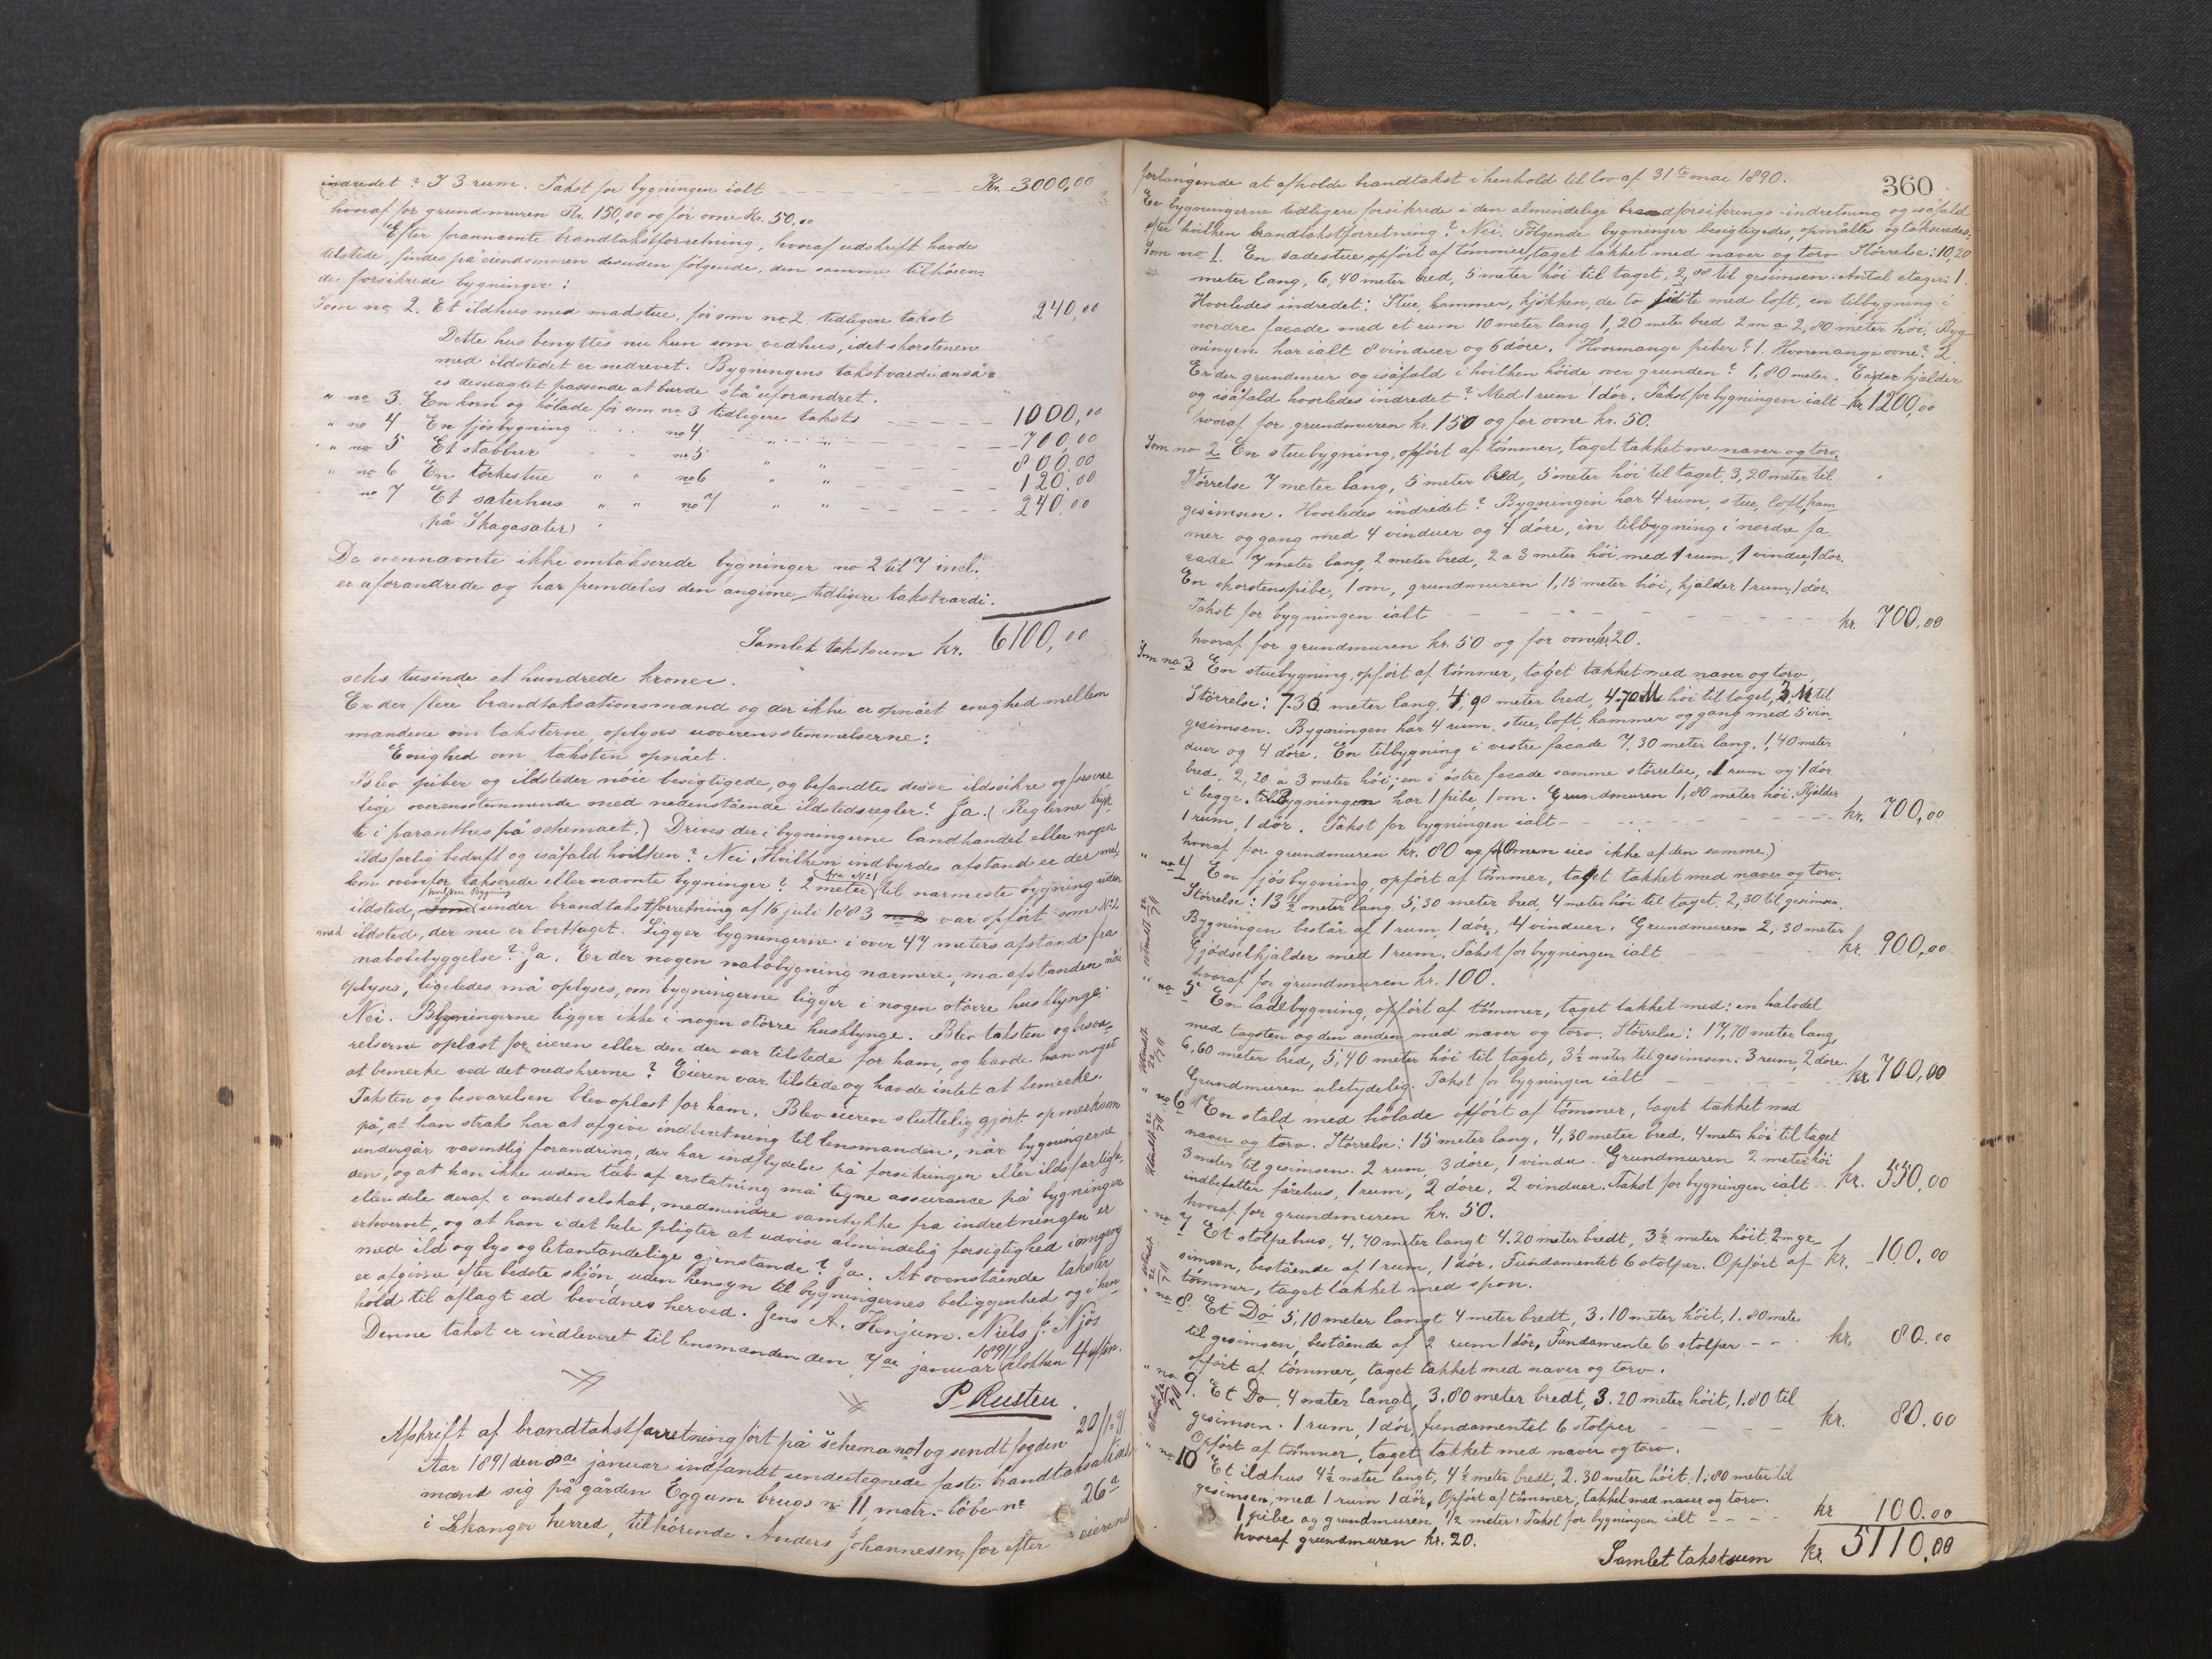 indredet? I 3 rum. Takst for bygningen ialt - - - - Kr. 3000,00
hvoraf for grundmuren Kr. 150,00 og for ovne Kr. 50,00
Efter forannævnte brandtakstforretning, hvoraf udskrift havdes
tilstede, findes på eiendommen desuden følgende, den samme tilhøren-
de forsikrede bygninger:
Som no 2. Et ildhus med madstue, før som no 2 tidligere takst 240,00
Dette hus benyttes nu kun som vedhus, idet skorstenen
med ildstedet er nedrevet. Bygningens takstværdi anså-
es desuagtet passende at burde stå uforandret.
" no 3. En korn og hölade för som no 3 tidligere takst - - - - 1000,00
" no 4 En fjösbygning " " no 4 - " - " - - - - 700,00
" no 5 Et stabbur " " no 5 " " - - - 800,00
" no 6 En törkestue " " no 6 " " - - - - 120,00
" no 7 Et sæterhus " " no 7 " " - - - - 240,00
(på Skagasæter)
De ovennævnte ikke omtakserede bygninger no 2 til 7 incl.
er uforandrede og har fremdeles den angivne tidligere takstværdi.
Samlet takstsum kr. 6100,00
seks tusinde et hundrede kroner.
Er der flere brandtaksationsmænd og der ikke er opnået enighed mellem
mændene om taksterne, oplyses uoverensstemmelserne:
Enighed om taksten opnået.
Blev piber og ildsteder nöie besigtigede, og befandtes disse ildssikre og forsvar
lige overensstemmende med nedenstående ildstedsregler? Ja. (Reglerne tryk
te i paranthes på schemaet.) Drives der i bygningerne landhandel eller nogen
ildsfarlig bedrift og isåfald hvilken? Nei. Hvilken indbyrdes afstand er der mel
lem ovenfor takserede eller nævnte bygninger? 2 meter fra No 1 til nærmeste bygning uden
ildsted, hvilken Bygning under brandtakstforretning af 16 juli 1883 var opfört som No 2
med ildsted, der nu er borttaget. Ligger bygningerne i over 47 meters afstand fra
nabobebyggelse? Ja. Er der nogen nabobygning nærmere, må afstanden nöie
oplyses, ligeledes må oplyses, om bygningerne ligger i nogen större husklynge.
Nei. Bygningerne ligger ikke i nogen större husklynge. Blev taksten og besva-
relserne oplæst for eieren eller den der var tilstede for ham, og havde han noget
at bemerke ved det nedskrevne? Eieren var tilstede og havde intet at bemerke.
Taksten og besvarelsen blev oplæst for ham. Blev eieren sluttelig gjort opmerksom
på, at han straks har at afgive indberetning til lensmanden, når bygningerne
undergår væsentlig forandring, der har indflydelse på forsikringen eller ildsfarlighe-
den, og at han ikke uden tab af erstatning må tegne assurance på bygningen
eller dele deraf i andet selskab, medmindre samtykke fra indretningen er
erhvervet, og at han i det hele pligter at udvise almindelig forsigtighed i omgang
med ild og lys og letantændelige gjenstande? Ja. At ovenstående takster
er afgivne efter bedste skjön, uden hensyn til bygningernes beliggenhed og i hen-
hold til aflagt ed bevidnes herved. Jens A. Henjum. Niels J. Njös
Denne takst er indleveret til lensmanden den 7de januar 1891 klokken 4 eftm.
P. Rusten
Afskrift af brandtakstforretning fört på schema no 1 og sendt fogden 20/1 91
Aar 1891 den 8de januar indfandt undertegnede faste brandtaksations
mænd sig på gården Eggum brugs no 11, matr. löbe-no 26a
i Lekanger herred, tilhörende Anders Johannesen, for efter eierens
360
forlangende at afholde brandtakst i henhold til lov af 31te mai 1890.
Er bygningerne tidligere forsikrede i den almindelige brandforsikrings-indretning og isåfald
efter hvilken brandtakstforretning? Nei. Fölgende bygninger besigtigedes, opmåltes og takseredes:
Som no 1. En sadestue, opfört af tömmer, taget takket med næver og torv. Störrelse: 10,20
meter lang, 6,40 meter bred, 5 meter höi til taget, 2,00 til gesimsen. Antal etager: 1.
Hvorledes indredet: Stue, kammer, kjökken, de to sidste med loft, en tilbygning i
nordre facade med et rum 10 meter lang 1,20 meter bred 2 m a 2,80 meter höi. Byg-
ningen har ialt 8 vinduer og 6 döre. Hvormange piber? 1. Hvormange ovne? 2.
Er der grundmur og isåfald i hvilken höide over grunden? 1,80 meter. Er der kjælder
og isåfald hvorledes indredet? Med 1 rum 1 dör. Takst for bygningen ialt kr. 1200,00
hvoraf for grundmuren kr. 150 og for ovne kr. 50.
Som no 2. En stuebygning, opfört af tömmer, taget takket me næver og torv,
störrelse 7 meter lang, 5 meter bred, 5 meter höi til taget, 3,20 meter til
gesimsen. Hvorledes indredet? Bygningen har 4 rum, stue, loft, kam-
mer og gang med 4 vinduer og 4 döre, en tilbygning i nordre fa-
cade 7 meter lang, 2 meter bred, 2 a 3 meter höi, med 1 rum, 1 vindu, 1 dör.
En skorstenspibe, 1 ovn, grundmuren 1,15 meter höi, kjælder 1 rum, 1 dör.
Takst for bygningen ialt - - - - - - kr. 700,00
hvoraf for grundmuren kr. 50 og for ovne kr. 20.
Som no 3 En stuebygning, opfört af tömmer, taget takket med næver og torv,
Störrelse: 7.30 meter lang, 4,90 meter bred, 4.70 M höi til taget, 3 M til
gesimsen. Bygningen har 4 rum, stue, loft, kammer og gang med 5 vin-
duer og 4 döre. En tilbygning i vestre facade 7,30 meter lang, 1,40 meter
bred, 2,20 a 3 meter höi; en i östre facade samme störrelse, 1 rum og 1 dör
i begge. Bygningen har 1 pibe, 1 ovn. Grundmuren 1,80 meter höi. Kjælder
1 rum, 1 dör. Takst for bygningen ialt - - - - - kr. 700,00
hvoraf for grundmuren kr. 80 (Ovnen eies ikke af den samme)
" no 4 En fjösbygning, opfört af tömmer, taget takket med næver og torv.
Störrelse: 13 1/2 meter lang 5,30 meter bred 4 meter höi til taget, 2,30 til gesimsen.
Bygningen består af 1 rum, 1 dör, 4 vinduer. Grundmuren 2,30 meter
Gjödselkjælder med 1 rum. Takst for bygningen ialt - - - kr. 900,00
hvoraf for grundmuren kr. 100.
" no 5 En ladebygning, opfört af tömmer, taget takket med: en halvdel
med tagsten og den anden med næver og torv. Störrelse: 17,70 meter lang,
6,60 meter bred, 5,40 meter höi til taget, 3 1/2 meter til gesimsen. 3 rum, 2 döre.
Grundmuren ubetydelig. Takst for bygningen ialt - - - - kr 700,00
" no 6 En stald med hölade opfört af tömmer, taget takket med
næver og torv. Störrelse: 15 meter lang, 4,30 meter bred, 4 meter höi til taget
3 meter til gesimsen. 2 rum, 3 döre, 1 vindu. Grundmuren 2 meter höi
indbefatter fårehus, 1 rum, 2 döre, 2 vinduer. Takst for bygningen ialt kr. 550,00
hvoraf for grundmuren kr. 50.
" no 7 Et stolpehus, 4,70 meter langt 4.20 meter bredt, 3 1/2 meter höit 2 m ge-
simsen, bestående af 1 rum, 1 dör. Fundamentet 6 stolper. Opfört af kr. 100.00
tömmer, taget takket med spon.
" no 8. Et Do 5,10 meter langt 4 meter bredt, 3.10 meter höit, 1.80 meter
til gesimsen, bestående af 2 rum 1 dör, Fundamente 6 stolper - - kr. 80.00
opfört af tömmer, taget takket med næver og torv.
" no 9. Et Do 4 meter langt, 3.80 meter bredt, 3.20 meter höit, 1.80 til
gesimsen. 1 rum, 1 dör, fundamentet 6 stolper - - - kr. 80.00
Opfört af tömmer, taget takket med næver og torv.
" no 10 Et ildhus 4 1/2 meter langt, 4 1/2 meter bredt, 2.30 meter höit, 1.80 meter til
gesimsen, med 1 rum 1 dör, Opfört af tömmer, takket med næver og torv.
1 pibe og grundmuren 1/2 meter. Takst for bygningen ialt - - - - kr 100.00
hvoraf grundmuren kr. 20.
Samlet takstsum kr. 5110,00